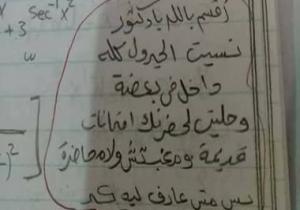 sec⁻¹ x²
+ 3
w
أقسم بالله يا دكتور
نسيت الجدول كله
داخل في بعضة
وحليت لحضرتك امتحانات
قديمة ومغبتش ولا محاضرة
بس مش عارف ليه كده
)²